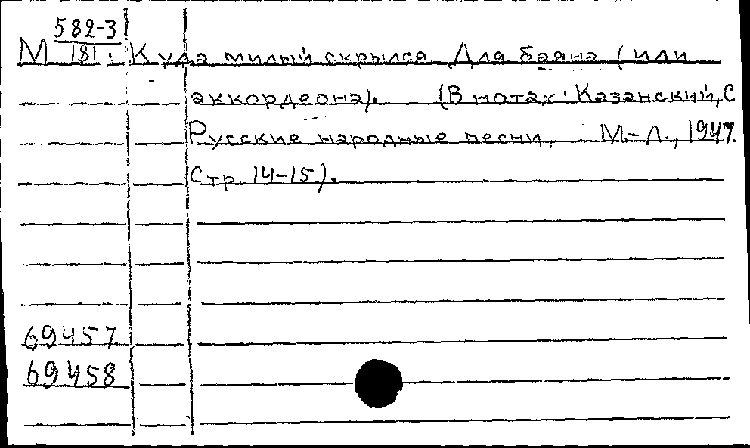 М 582-3
181
Куда милый скрылся. Для баяна (или
аккордеона). (В нотах: Казанский, С
Русские народные песни. М.-Л., 1947.
Стр. 14-15).
69457
69458